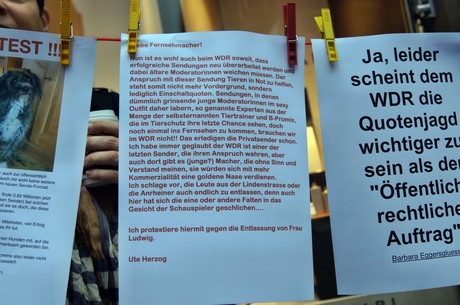 TEST !!!
Liebe Fernsehmacher!
Nun ist es wohl auch beim WDR soweit, dass
erfolgreiche Sendungen neu überarbeitet werden und
dabei ältere Moderatorinnen weichen müssen. Der
Anspruch mit dieser Sendung Tieren in Not zu helfen,
steht somit nicht mehr Vordergrund, sondern
lediglich Einschaltquoten. Sendungen, in denen
dümmlich grinsende junge Moderatorinnen im sexy
Outfit daher labern, so genannte Experten aus der
Menge der selbsternannten Tiertrainer und B-Promis,
die im Tierschutz ihre letzte Chance sehen, doch
noch einmal ins Fernsehen zu kommen, brauchen wir
im WDR nicht!! Das erledigen die Privatsender schon.
Ich habe immer geglaubt der WDR ist einer der
letzten Sender, die ihren Anspruch wahren, aber
auch dort gibt es (junge?) Macher, die ohne Sinn und
Verstand meinen, sie würden sich mit mehr
Kommerzialität eine goldene Nase verdienen.
Ich schlage vor, die Leute aus der Lindenstrasse oder
die Anrheiner auch endlich zu entlassen, denn auch
hier hat sich die eine oder andere Falten in das
Gesicht der Schauspieler geschlichen....
Ich protestiere hiermit gegen die Entlassung von Frau
Ludwig.
Ute Herzog
Ja, leider
scheint dem
WDR die
Quotenjagd
wichtiger zu
sein als der
"Öffentlich
rechtliche
Auftrag"
Barbara Eggersgluess